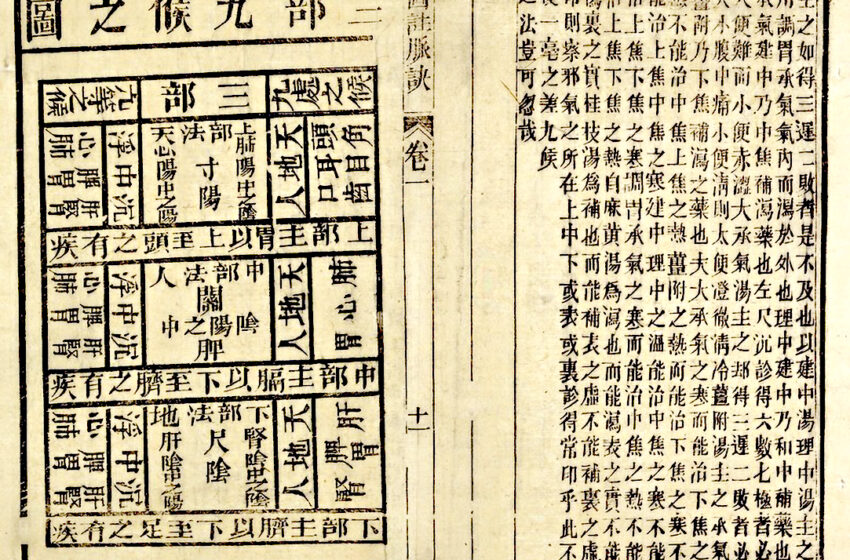 之如得三遲二敗者是不及也以建中湯理中湯主之
用調胃承氣氣内而湯於外也理中建中乃和中補藥也
承氣建中乃中焦補瀉藥也左尺沉診得六數七極者必
大便難而小便赤澀大承氣湯主之却得三遲二敗者必
大小腹中痛小便淸則大便澄徹清冷薑附湯主之承氣
薑附乃下焦補瀉之藥也夫大承氣之寒而能治下焦之
熱不能治中焦上焦之熱薑附之熱而能治下焦之寒不
能治上焦中焦之寒建中理中之溫能治中焦之寒不能
治上焦下焦之寒調胃承氣之寒而能治中焦之熱不能
治上焦下焦之熱自麻黃湯爲瀉也而能瀉表之實不能
瀉裏之實桂枝湯爲補也而能補表之虛不能補裏之虛
則察邪氣之所在上中下或表或裏診得常印乎此不
一毫之差九候
之法豈可忽哉
註脈訣
卷一
十一
部九候之圖
候之處九
三部
九等之候
頭角
耳目
口齒
天地人
上肺陽中之陰
部寸陽
法
天心陽中之陽
浮中沉
心脾肝
肺胃腎
上部主胃以上至頭之有疾
肺心胃
天地人
中陰
部關陽
法之脾
人中
浮中沉
心脾肝
肺胃腎
中部主膈以下至臍之有疾
肝胃脾腎
天地人
下腎陰中之陰
部尺陰
法
地肝陰中之陽
浮中沉
心脾肝
肺胃腎
下部主臍以下至足之有疾